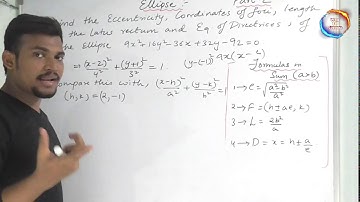 Ellipse :-
Find the Eccentricity, Coordinates of foci, length
the Latus rectum and Eq. of Directrices, of
the Ellipse 9x²-16y²-36x+32y-92=0
⇒ (x-2)²/4² + (y+1)²/3² = 1
y-(-1) 9x(x-
Compare this with, (x-h)²/a² + (y-k)²/b² = 1
(h,k) = (2,-1)
Formulas in
Sum (a>b)
1→ e = √(a²-b²)/a²
2→ F = (h±ae, k)
3→ L = 2b²/a
4→ D = x = h±a/e